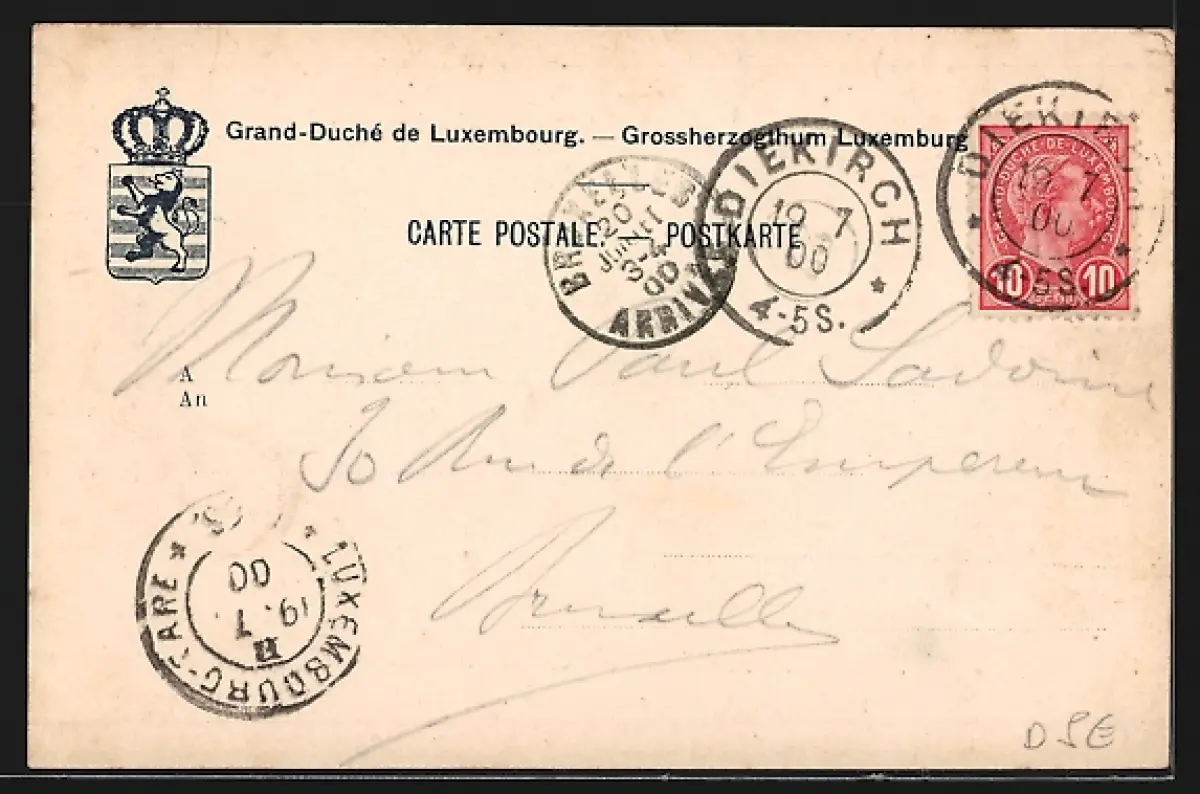 Grand-Duché de Luxembourg. — Grossherzogthum Luxemburg
CARTE POSTALE. — POSTKARTE
DIEKIRCH
GRAND-DUCHÉ-DE-LUXEMBOURG
19 7
00
4-5S
10 10
DIEKIRCH
19 7
00
4-5S.
BRUXELLES
20
3-4
00
ARRIVÉE
A
An
Monsieur Paul Sadoine
30 Rue de l'Empereur
Bruxelles
LUXEMBOURG-GARE
00
19. 7
DSE